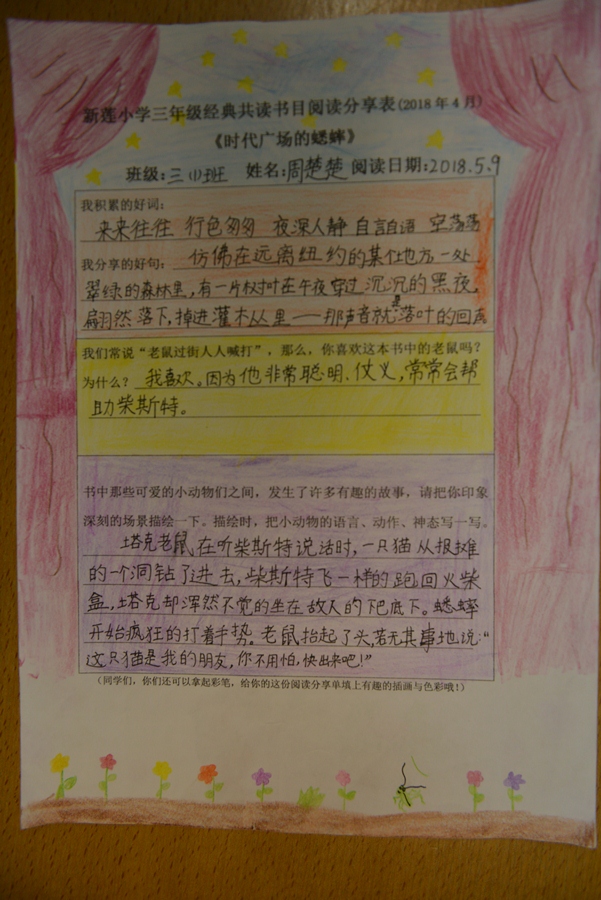 新莲小学三年级经典共读书目阅读分享表(2018年4月)
《时代广场的蟋蟀》
班级:三(1)班 姓名:周楚楚 阅读日期:2018.5.9
我积累的好词:
来来往往 行色匆匆 夜深人静 自言自语 空荡荡
我分享的好句: 仿佛在远离纽约的某个地方,一处
翠绿的森林里,有一片树叶在午夜穿过沉沉的黑夜,
翩然落下,掉进灌木丛里——那声音就是落叶的回声
我们常说“老鼠过街人人喊打”,那么,你喜欢这本书中的老鼠吗?
为什么? 我喜欢。因为他非常聪明、仗义,常常会帮
助柴斯特。
书中那些可爱的小动物们之间,发生了许多有趣的故事,请把你印象
深刻的场景描绘一下。描绘时,把小动物的语言、动作、神态写一写。
塔克老鼠在听柴斯特说话时,一只猫从报摊
的一个洞钻了进去,柴斯特飞一样的跑回火柴
盒,塔克却浑然不觉的坐在敌人的下巴底下。蟋蟀
开始疯狂的打着手势,老鼠抬起了头,若无其事地说:“
这只猫是我的朋友,你不用怕,快出来吧!”
(同学们,你们还可以拿起彩笔,给你的这份阅读分享单填上有趣的插画与色彩哦!)